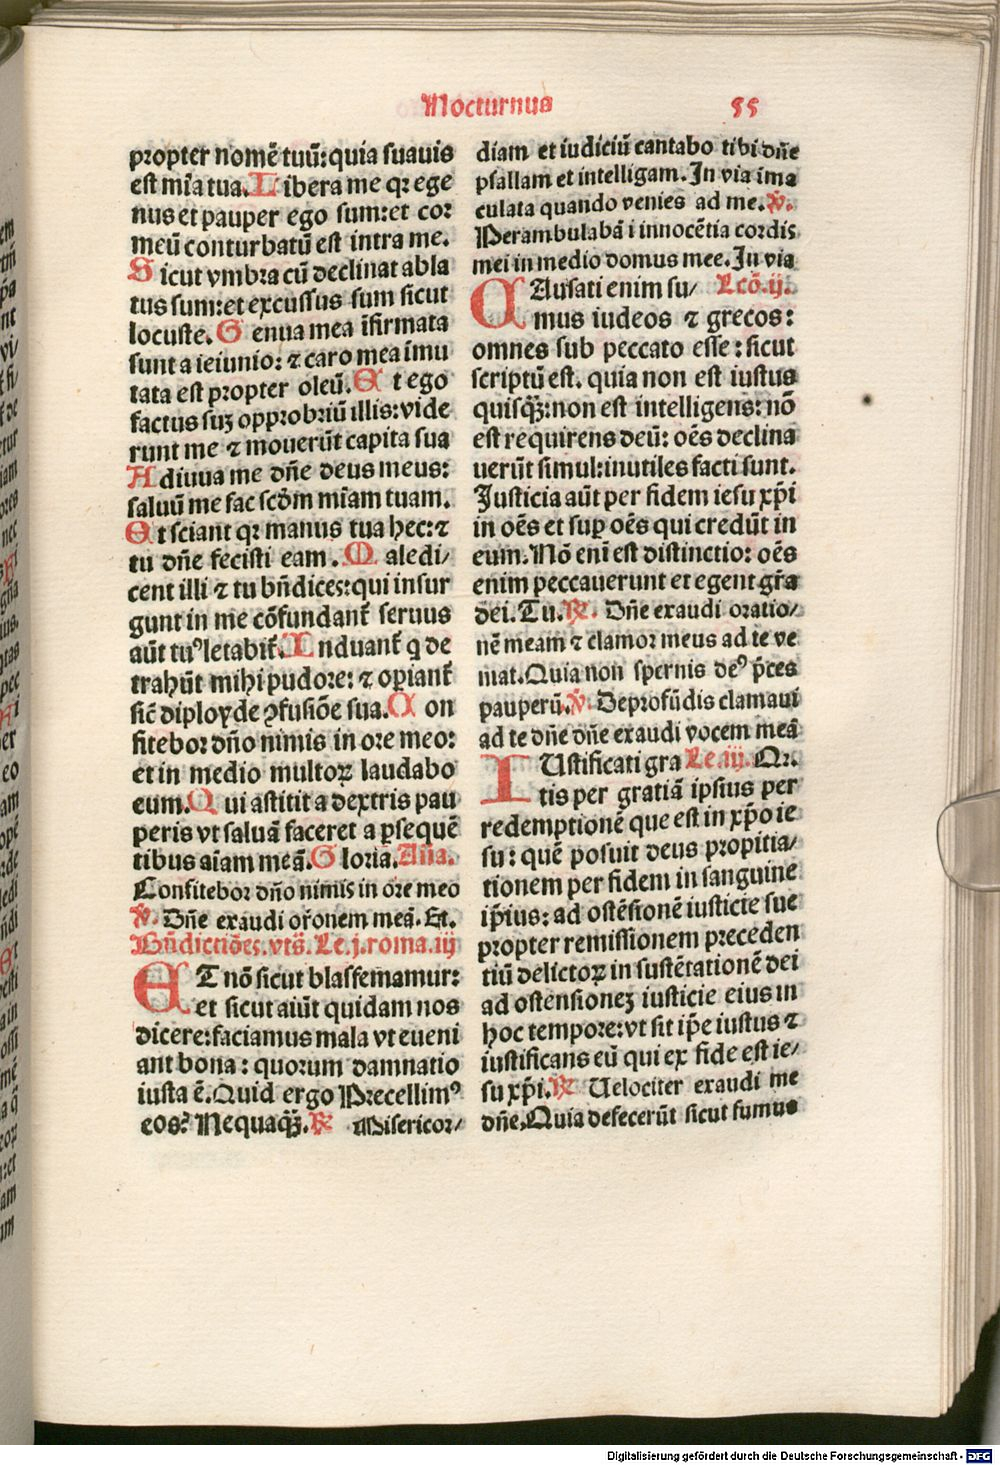 Nocturnus 55
propter nomē tuū: quia suauis
est mīa tua. Libera me qꝛ ege
nus et pauper ego sum: et coꝛ
meū conturbatū est intra me.
Sicut vmbra cū declinat abla
tus sum: et excussus sum sicut
locuste. Genua mea īfirmata
sunt a ieiunio: ⁊ caro mea īmu
tata est propter oleū. Et ego
factus suꝫ opprobriū illis: vide
runt me ⁊ mouerūt capita sua
Adiuua me dn̄e deus meus:
saluū me fac scḋm mīam tuam.
Et sciant qꝛ manus tua hec: ⁊
tu dn̄e fecisti eam. Maledi/
cent illi ⁊ tu bn̄dices: qui insur
gunt in me cōfundant᷑ seruus
aūt tuꝰ letabit᷑. Induant᷑ q̇ de
trahūt mihi pudore: ⁊ operiant᷑
sic̄ diployde ꝯfusiōe sua. Con
fitebor dn̄o nimis in ore meo:
et in medio multoꝝ laudabo
eum. Qui astitit a dextris pau
peris vt saluā faceret a ꝑsequē
tibus aīam meā. Gloria. Aña.
Confitebor dn̄o nimis in ore meo
℣. Dn̄e exaudi or̄onem meā. Et.
Bn̄dictiōes. vts̄. Le. j. roma. iij
ET nō sicut blasfemamur:
et sicut aiūt quidam nos
dicere: faciamus mala vt eueni
ant bona: quorum damnatio
iusta ē. Quid ergo Precellimꝰ
eos? Nequaꝙ̄. ℟ Misericor/
diam et iudiciū cantabo tibi dn̄e
psallam et intelligam. In via ima
culata quando venies ad me. ℣.
Perambulabā i innocētia cordis
mei in medio domus mee. In via
CAusati enim su/ Lcō. ij.
mus iudeos ⁊ grecos:
omnes sub peccato esse: sicut
scriptū est. quia non est iustus
quisꝙ̄: non est intelligens: nō
est requirens deū: oēs declina
uerūt simul: inutiles facti sunt.
Iusticia aūt per fidem iesu xp̄i
in oēs et suꝑ oēs qui credūt in
eum. Nō enī est distinctio: oēs
enim peccauerunt et egent gr̄a
dei. Tu. ℟. Dn̄e exaudi oratio/
nē meam ⁊ clamor meus ad te ve
niat. Quia non spernis deꝰ p̄ces
pauperū. ℣. De profūdis clamaui
ad te dn̄e dn̄e exaudi vocem meā
IUstificati gra Le. iij. Or.
tis per gratiā ipsius per
redemptionē que est in xp̄o ie
su: quē posuit deus propitia/
tionem per fidem in sanguine
ip̄ius: ad ostēsionē iusticie sue
propter remissionem preceden
tiū delictoꝝ in sustētationē dei
ad ostensioneꝫ iusticie eius in
hoc tempore: vt sit ip̄e iustus ⁊
iustificans eū qui ex fide est ie/
su xp̄i. ℟ Uelociter exaudi me
dn̄e. Quia defecerūt sicut fumus
Digitalisierung gefördert durch die Deutsche Forschungsgemeinschaft - DFG